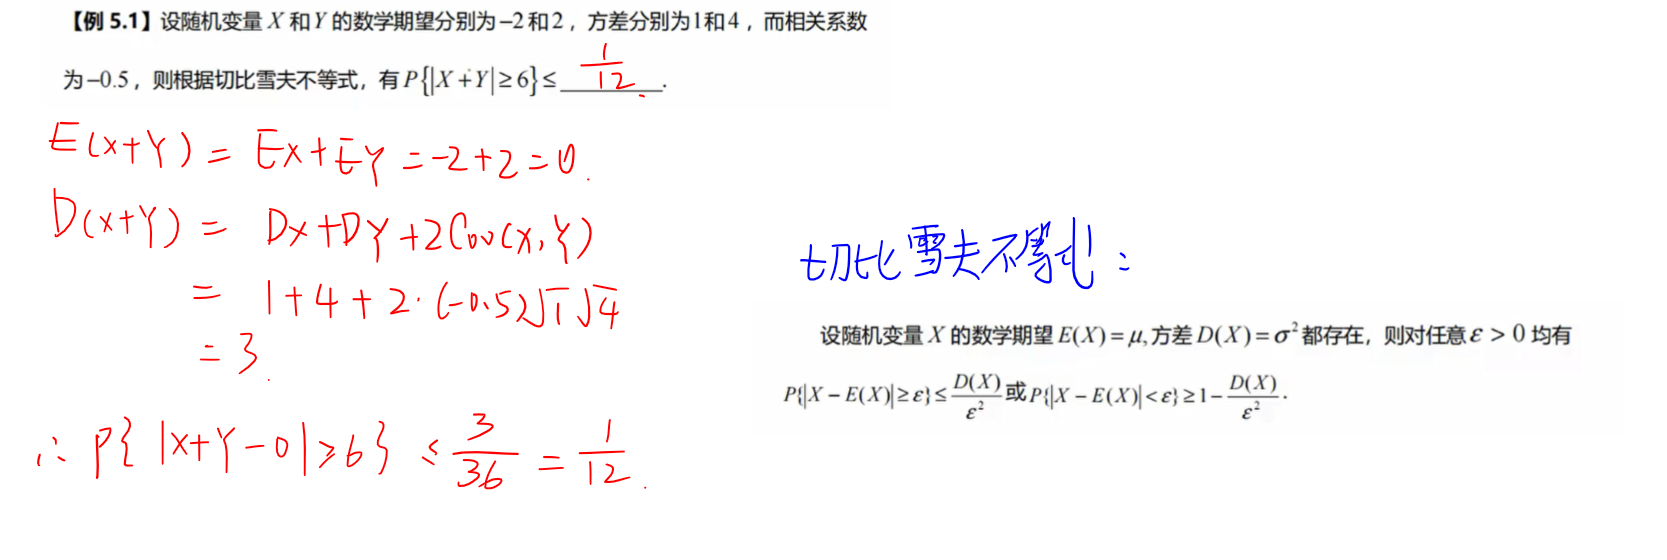 【例 5.1】设随机变量 X 和 Y 的数学期望分别为 −2 和 2，方差分别为 1 和 4，而相关系数
为 −0.5，则根据切比雪夫不等式，有 P{|X+Y|≥6}≤ 1/12 .
E(X+Y) = EX+EY = -2+2 = 0.
D(X+Y) = DX+DY+2Cov(X,Y)
= 1+4+2·(-0.5)√1√4
= 3.
∴ P{|X+Y-0|≥6} ≤ 3/36 = 1/12.
切比雪夫不等式：
设随机变量 X 的数学期望 E(X)=μ,方差 D(X)=σ² 都存在，则对任意 ε > 0 均有
P{|X−E(X)|≥ε}≤D(X)/ε² 或 P{|X−E(X)|<ε}≥1−D(X)/ε².